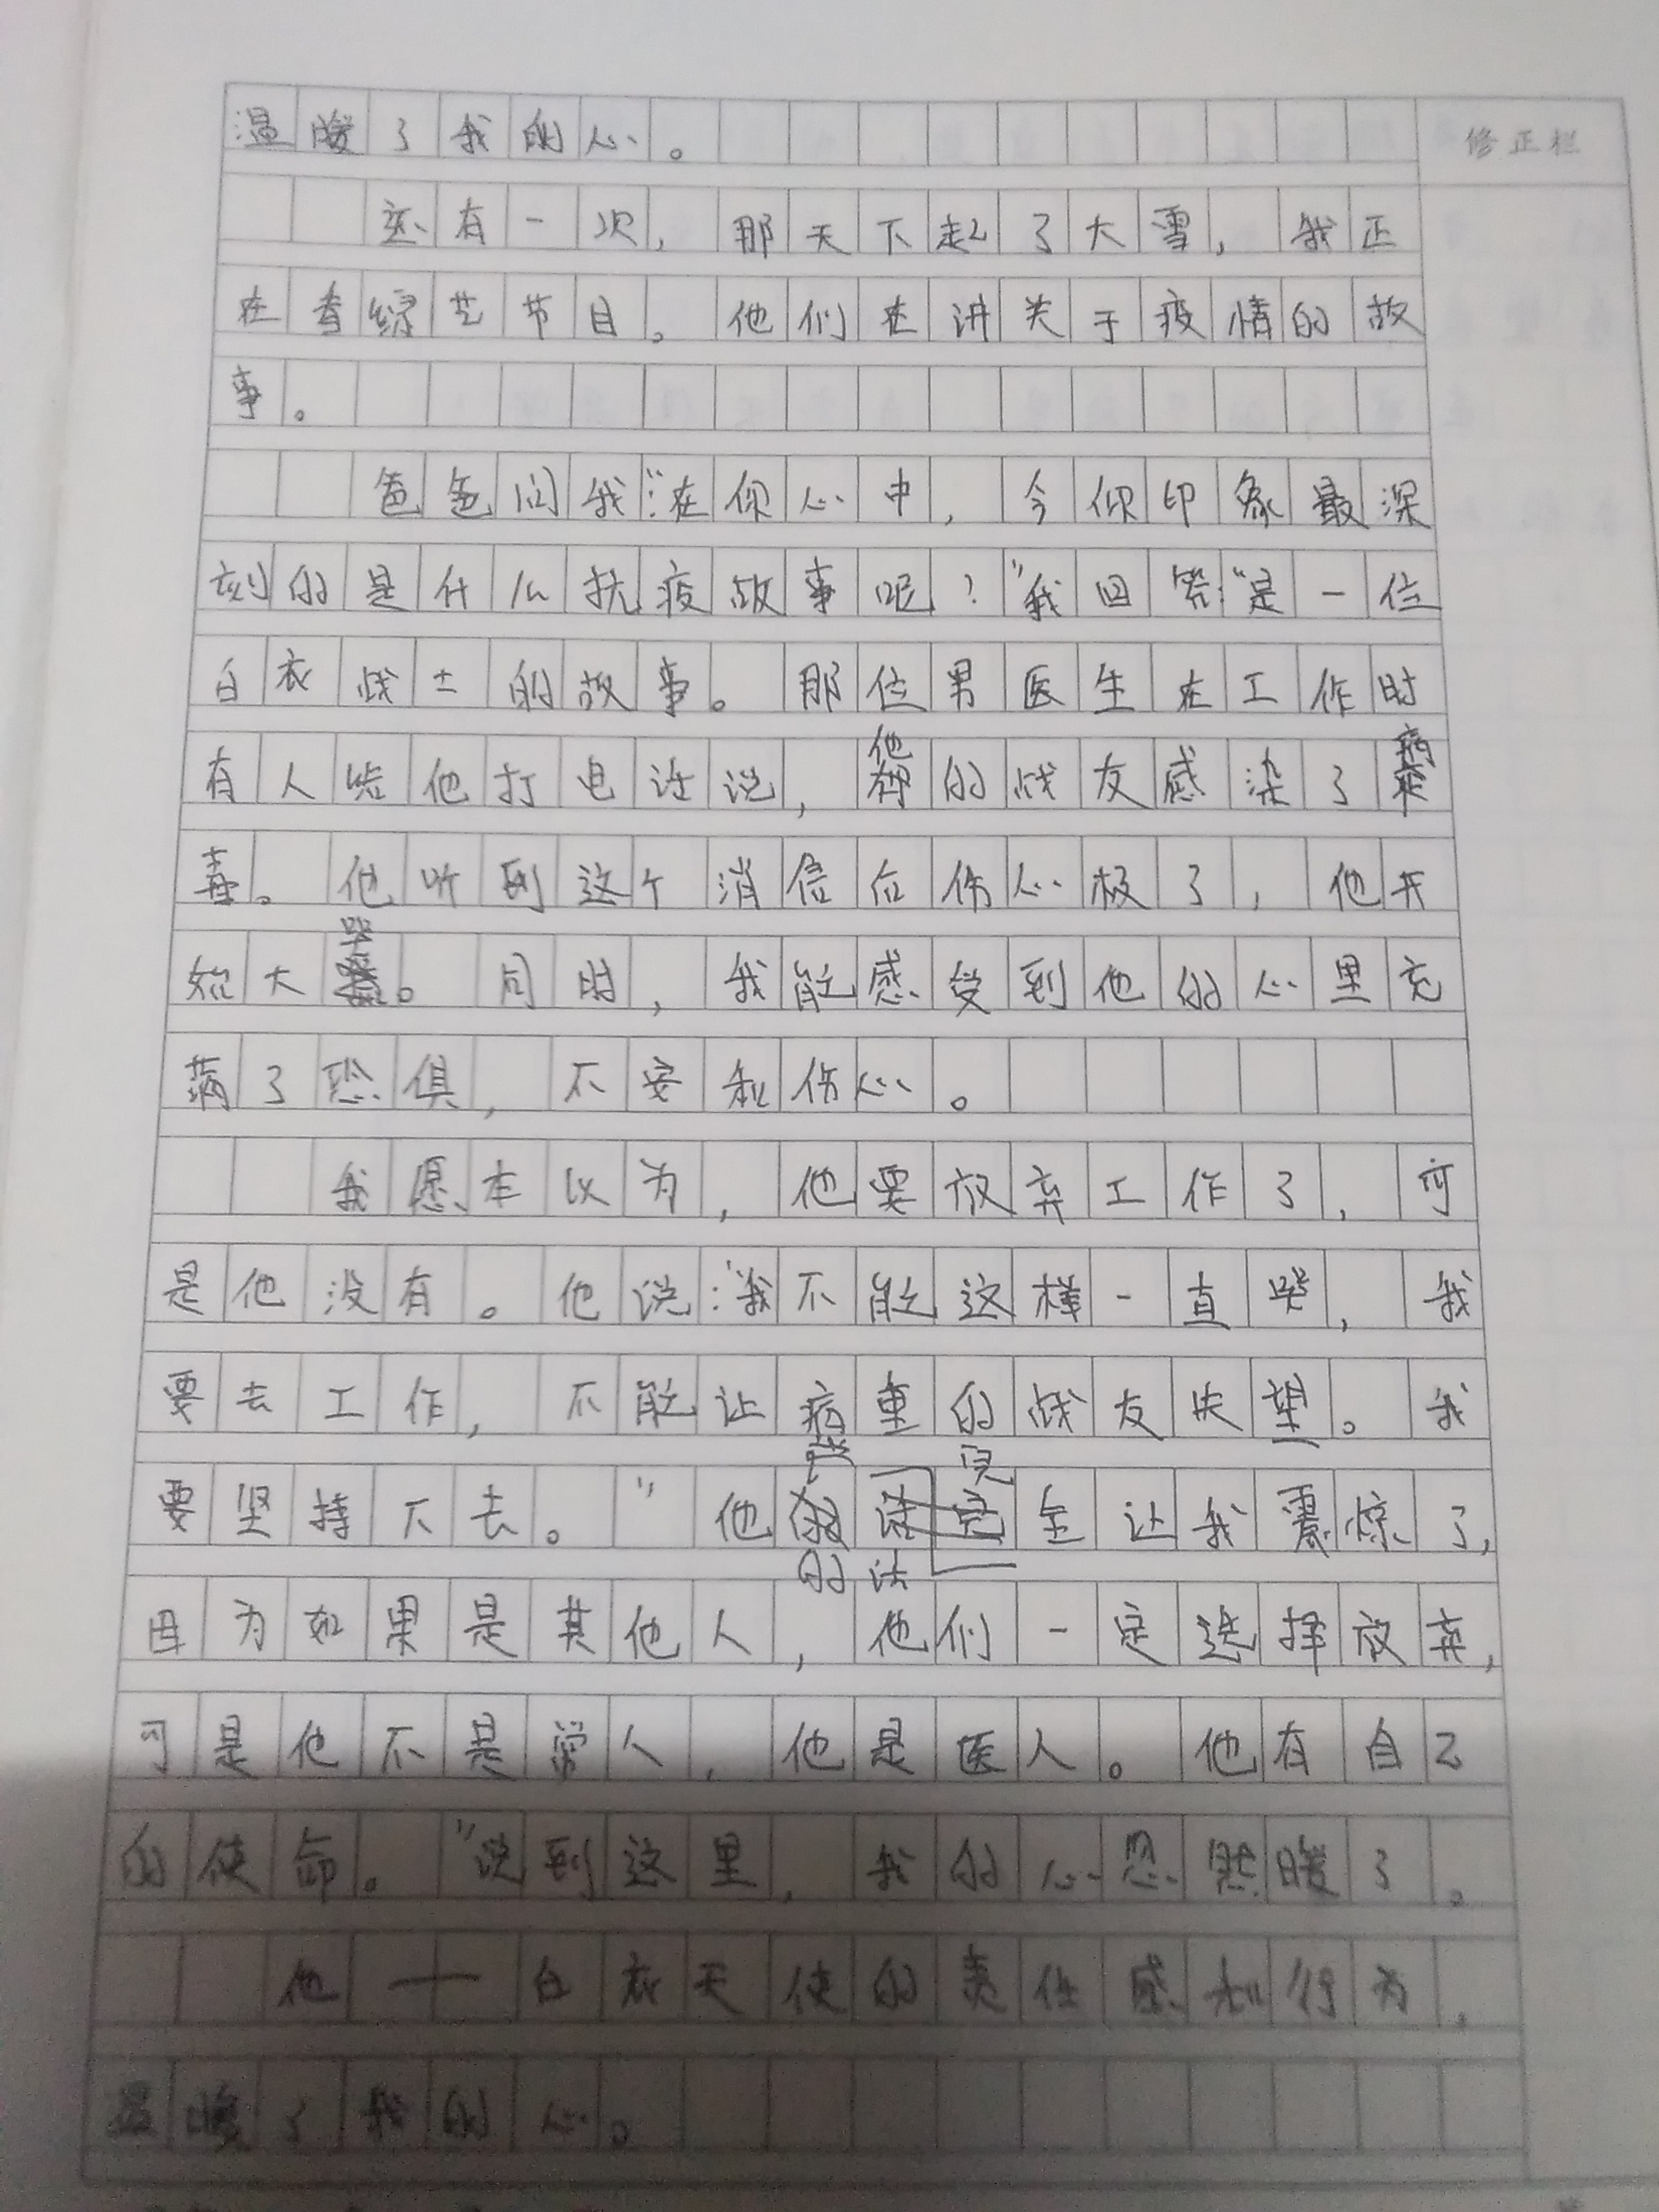 温暖了我的心。
修正栏
还有一次，那天下起了大雪，我正
在看综艺节目。他们在讲关于疫情的故
事。
爸爸问我:“在你心中，令你印象最深
刻的是什么抗疫故事呢？”我回答:“是一位
白衣战士的故事。那位男医生在工作时
有人给他打电话说，他的战友感染了病
毒。他听到这个消信后伤心极了，他开
始大哭。同时，我能感受到他的心里充
满了恐俱，不安和伤心。
我愿本以为，他要放弃工作了，可
是他没有。他说:“我不能这样一直哭，我
要去工作，不能让病重的战友失望。我
要坚持下去。”他说的话完全让我震惊了，
因为如果是其他人，他们一定选择放弃，
可是他不是常人，他是医人。他有自己
的使命。”说到这里，我的心忽然暖了。
他——白衣天使的责任感和行为，
温暖了我的心。